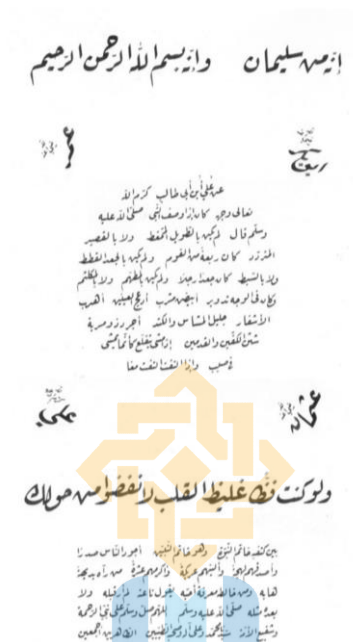 إنه من سليمان وإنه بسم الله الرحمن الرحيم
عمر
عن علي بن أبي طالب كرم الله
تعالى وجهه كان إذا وصف النبي صلى الله عليه
وسلم قال لم يكن بالطويل الممغط ولا بالقصير
المتردد كان ربعة من القوم ولم يكن بالجعد القطط
ولا بالسبط كان جعدا رجلا ولم يكن بالمطهم ولا بالمكلثم
وكان في الوجه تدوير أبيض مشرب أدعج العينين أهدب
الأشفار جليل المشاش والكتد أجرد ذو مسربة
شثن الكفين والقدمين إذا مشى يتقلع كأنما يمشي
في صبب وإذا التفت التفت معا
عثمان علي
ولو كنت فظا غليظ القلب لانفضوا من حولك
بين كتفيه خاتم النبوة وهو خاتم النبيين أجود الناس صدرا
وأصدقهم لهجة وألينهم عريكة وأكرمهم عشرة من رآه بديهة
هابه ومن خالطه معرفة أحبه يقول ناعته لم أر قبله ولا
بعده مثله صلى الله عليه وسلم اللهم صل وسلم على نبي الرحمة